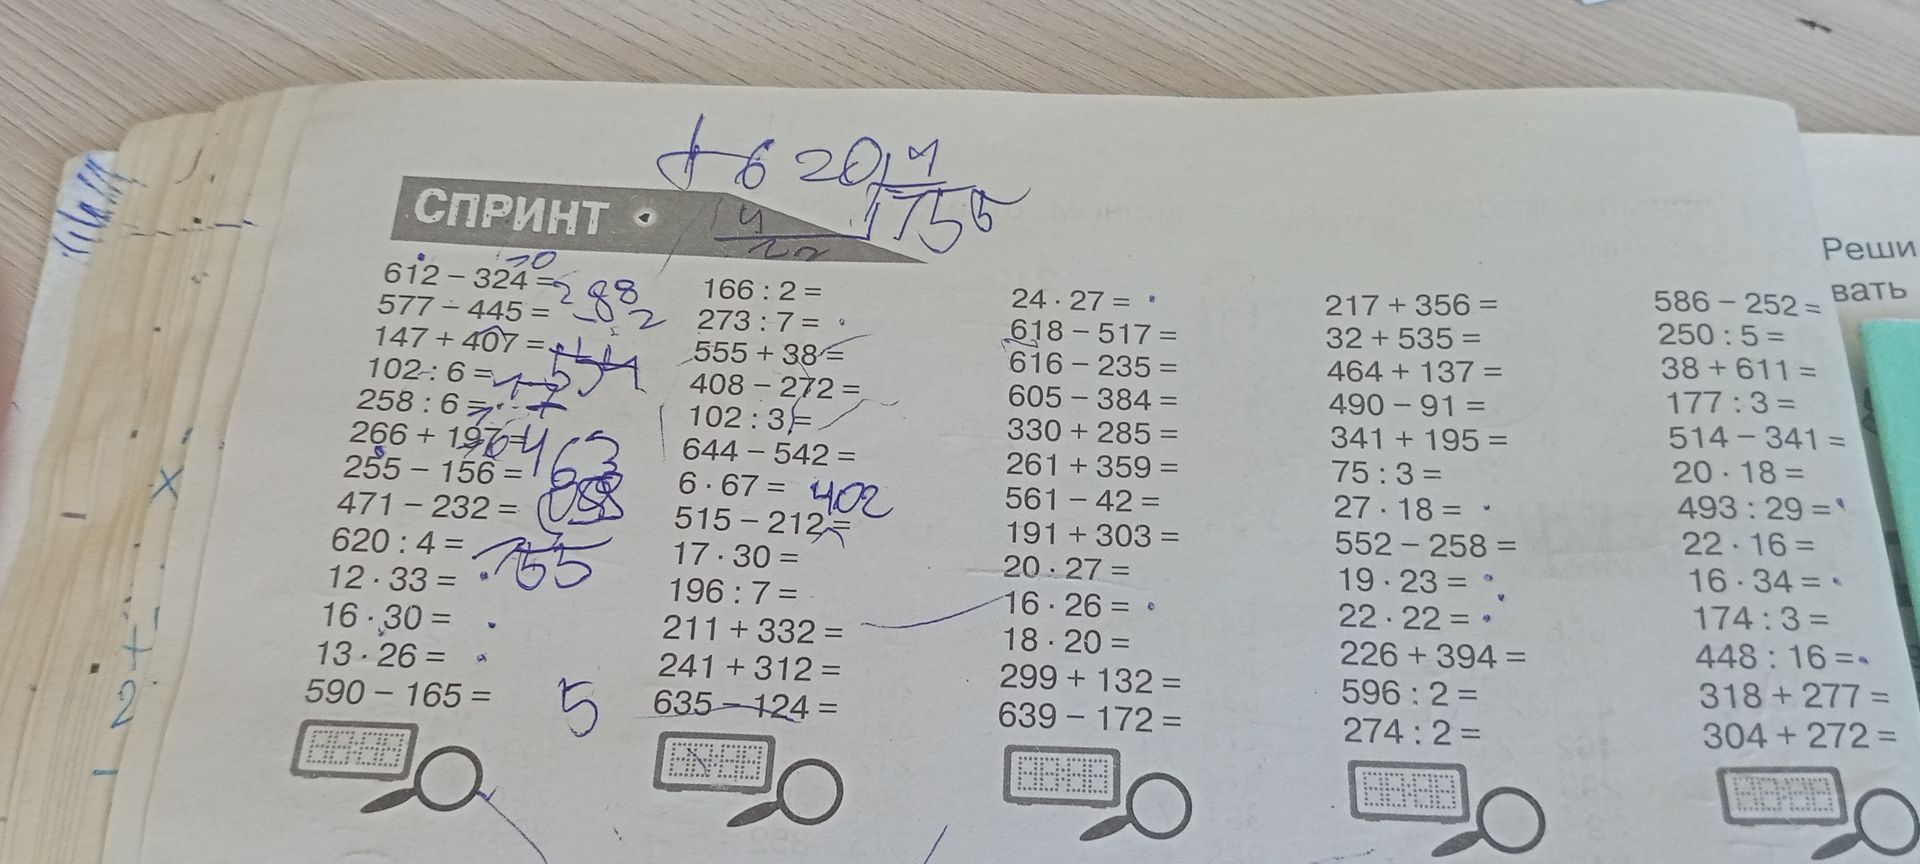 + 6 20 4
СПРИНТ
4
155
22
612 – 324 = 288
577 – 445 =
147 + 407 = 554
102 : 6 =
258 : 6 =
266 + 197 = 463
255 – 156 =
471 – 232 =
620 : 4 = 155
12 · 33 =
16 · 30 =
13 · 26 =
590 – 165 =
5
166 : 2 =
273 : 7 =
555 + 38 =
408 – 272 =
102 : 3 =
644 – 542 =
6 · 67 = 402
515 – 212 =
17 · 30 =
196 : 7 =
211 + 332 =
241 + 312 =
635 – 124 =
24 · 27 =
618 – 517 =
616 – 235 =
605 – 384 =
330 + 285 =
261 + 359 =
561 – 42 =
191 + 303 =
20 · 27 =
16 · 26 =
18 · 20 =
299 + 132 =
639 – 172 =
217 + 356 =
32 + 535 =
464 + 137 =
490 – 91 =
341 + 195 =
75 : 3 =
27 · 18 =
552 – 258 =
19 · 23 =
22 · 22 =
226 + 394 =
596 : 2 =
274 : 2 =
586 – 252 =
250 : 5 =
38 + 611 =
177 : 3 =
514 – 341 =
20 · 18 =
493 : 29 =
22 · 16 =
16 · 34 =
174 : 3 =
448 : 16 =
318 + 277 =
304 + 272 =
Реши
вать